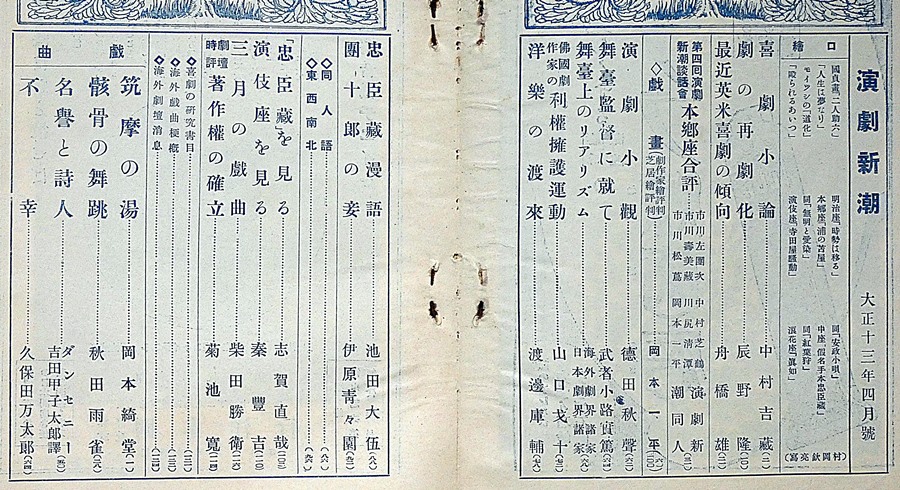 演劇新潮
大正十三年四月號
口繪
國貞畫「二人助六」
「人生は夢なり」
モイッシの「道化」
「毆られるあいつ」
明治座「時勢は移る」
本郷座「浦の苫屋」
同「無明と愛染」
演伎座「寺田屋騷動」
同「安政小唄」
中座「假名手本忠臣藏」
同「紅葉狩」
浪花座「眞如」
(村岡欽亮寫)
喜劇小論 中村吉藏
劇の再劇化 辰野隆
最近英米喜劇の傾向 舟橋雄
第四回演劇新潮談話會 本郷座合評 市川左團次 中村芝鶴 市川壽美藏 川尻清潭 市川松蔦 岡本一平 演劇新潮同人
◇戲畫(劇作家繪評判 芝居繪評判) 岡本一平
演劇小觀 德田秋聲
舞臺監督に就て 武者小路實篤
舞臺上のリアリズム 海外劇界諸家 日本劇界諸家
佛國劇作家の利權擁護運動 山口戈十
洋樂の渡來 渡邊庫輔
忠臣藏漫語 池田大伍
團十郎の妾 伊原靑々園
◇同人語
◇東西南北
「忠臣藏」を見る 志賀直哉
演伎座を見る 秦豐吉
三月の戲曲 柴田勝衛
劇壇時評 著作權の確立 菊池寬
◇喜劇の研究書目
◇海外戲曲梗槪
◇海外劇壇消息
戲曲
筑摩の湯 岡本綺堂
骸骨の舞跳 秋田雨雀
名譽と詩人 ダンセニー 吉田甲子太郎譯
不幸 久保田万太郎